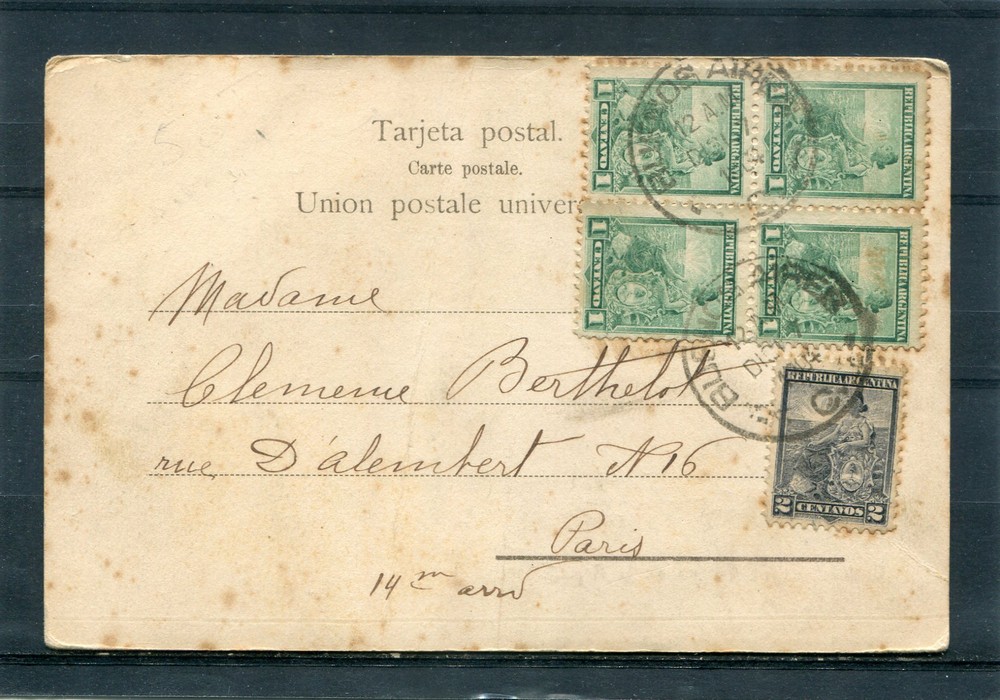 Tarjeta postal.
Carte postale.
Union postale univer
Madame
Clemence Berthelot
rue D'alembert N 16
Paris
14m arr
1 CENTAVO 1
REPUBLICA ARGENTINA
1 CENTAVO 1
REPUBLICA ARGENTINA
1 CENTAVO 1
REPUBLICA ARGENTINA
1 CENTAVO 1
REPUBLICA ARGENTINA
REPUBLICA ARGENTINA
2 CENTAVOS 2
BUENOS AIRES
12 A.M
BUENOS AIRES